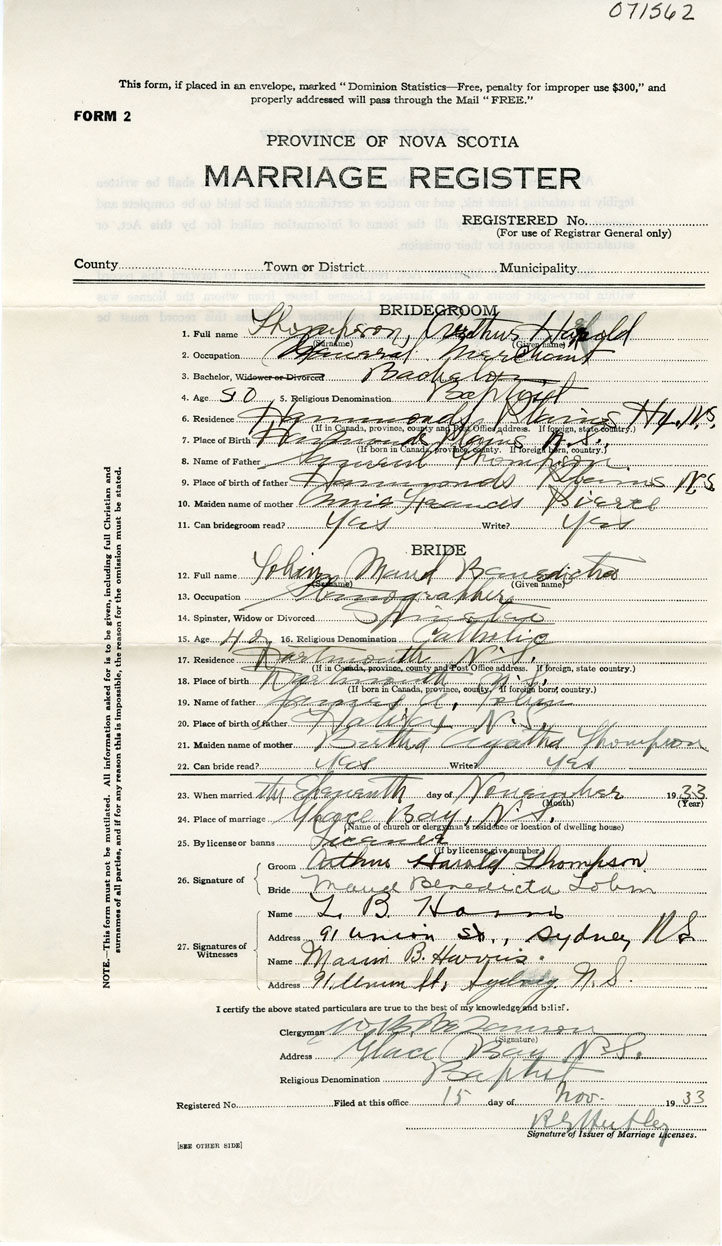 071562
This form, if placed in an envelope, marked "Dominion Statistics—Free, penalty for improper use $300," and
properly addressed will pass through the Mail "FREE."
FORM 2
PROVINCE OF NOVA SCOTIA
MARRIAGE REGISTER
REGISTERED No.
(For use of Registrar General only)
County Town or District Municipality
BRIDEGROOM
1. Full name Thompson, Arthur Harold
(Surname) (Given name)
2. Occupation General Merchant
3. Bachelor, Widower or Divorced Bachelor
4. Age 50 5. Religious Denomination Baptist
6. Residence Hammonds Plains Hx, N.S.
(If in Canada, province, county and Post Office address. If foreign, state country.)
7. Place of Birth Hammonds Plains N.S.,
(If born in Canada, province, county. If foreign born, country.)
8. Name of Father Thompson
9. Place of birth of father Hammonds Plains N.S.
10. Maiden name of mother Annie Francis
11. Can bridegroom read? Yes Write? Yes
BRIDE
12. Full name Tobin Maud Benedicta
(Surname) (Given name)
13. Occupation Stenographer
14. Spinster, Widow or Divorced Spinster
15. Age 42 16. Religious Denomination Catholic
17. Residence Dartmouth N.S.
(If in Canada, province, county and Post Office address. If foreign, state country.)
18. Place of birth Dartmouth N.S.
(If born in Canada, province, county. If foreign born, country.)
19. Name of father James A. Tobin
20. Place of birth of father Halifax, N.S.
21. Maiden name of mother Bertha Agatha Thompson
22. Can bride read? Yes Write? Yes
23. When married the Eleventh day of November 1933
(Month) (Year)
24. Place of marriage Glace Bay, N.S.
(Name of church or clergyman's residence or location of dwelling house)
25. By license or banns License
(If by license, give number)
26. Signature of Groom Arthur Harold Thompson
Bride Maud Benedicta Tobin
27. Signatures of Witnesses
Name L. B. Harris
Address 91 Union St., Sydney N.S.
Name Marion B. Harris.
Address 91 Union St, Sydney N.S.
I certify the above stated particulars are true to the best of my knowledge and belief.
Clergyman
(Signature)
Address Glace Bay N.S.
Religious Denomination Baptist
Registered No. Filed at this office 15 day of Nov. 1933
Signature of Issuer of Marriage Licenses.
[SEE OTHER SIDE]
NOTE.—This form must not be mutilated. All information asked for is to be given, including full Christian and
surnames of all parties, and if for any reason this is impossible, the reason for the omission must be stated.